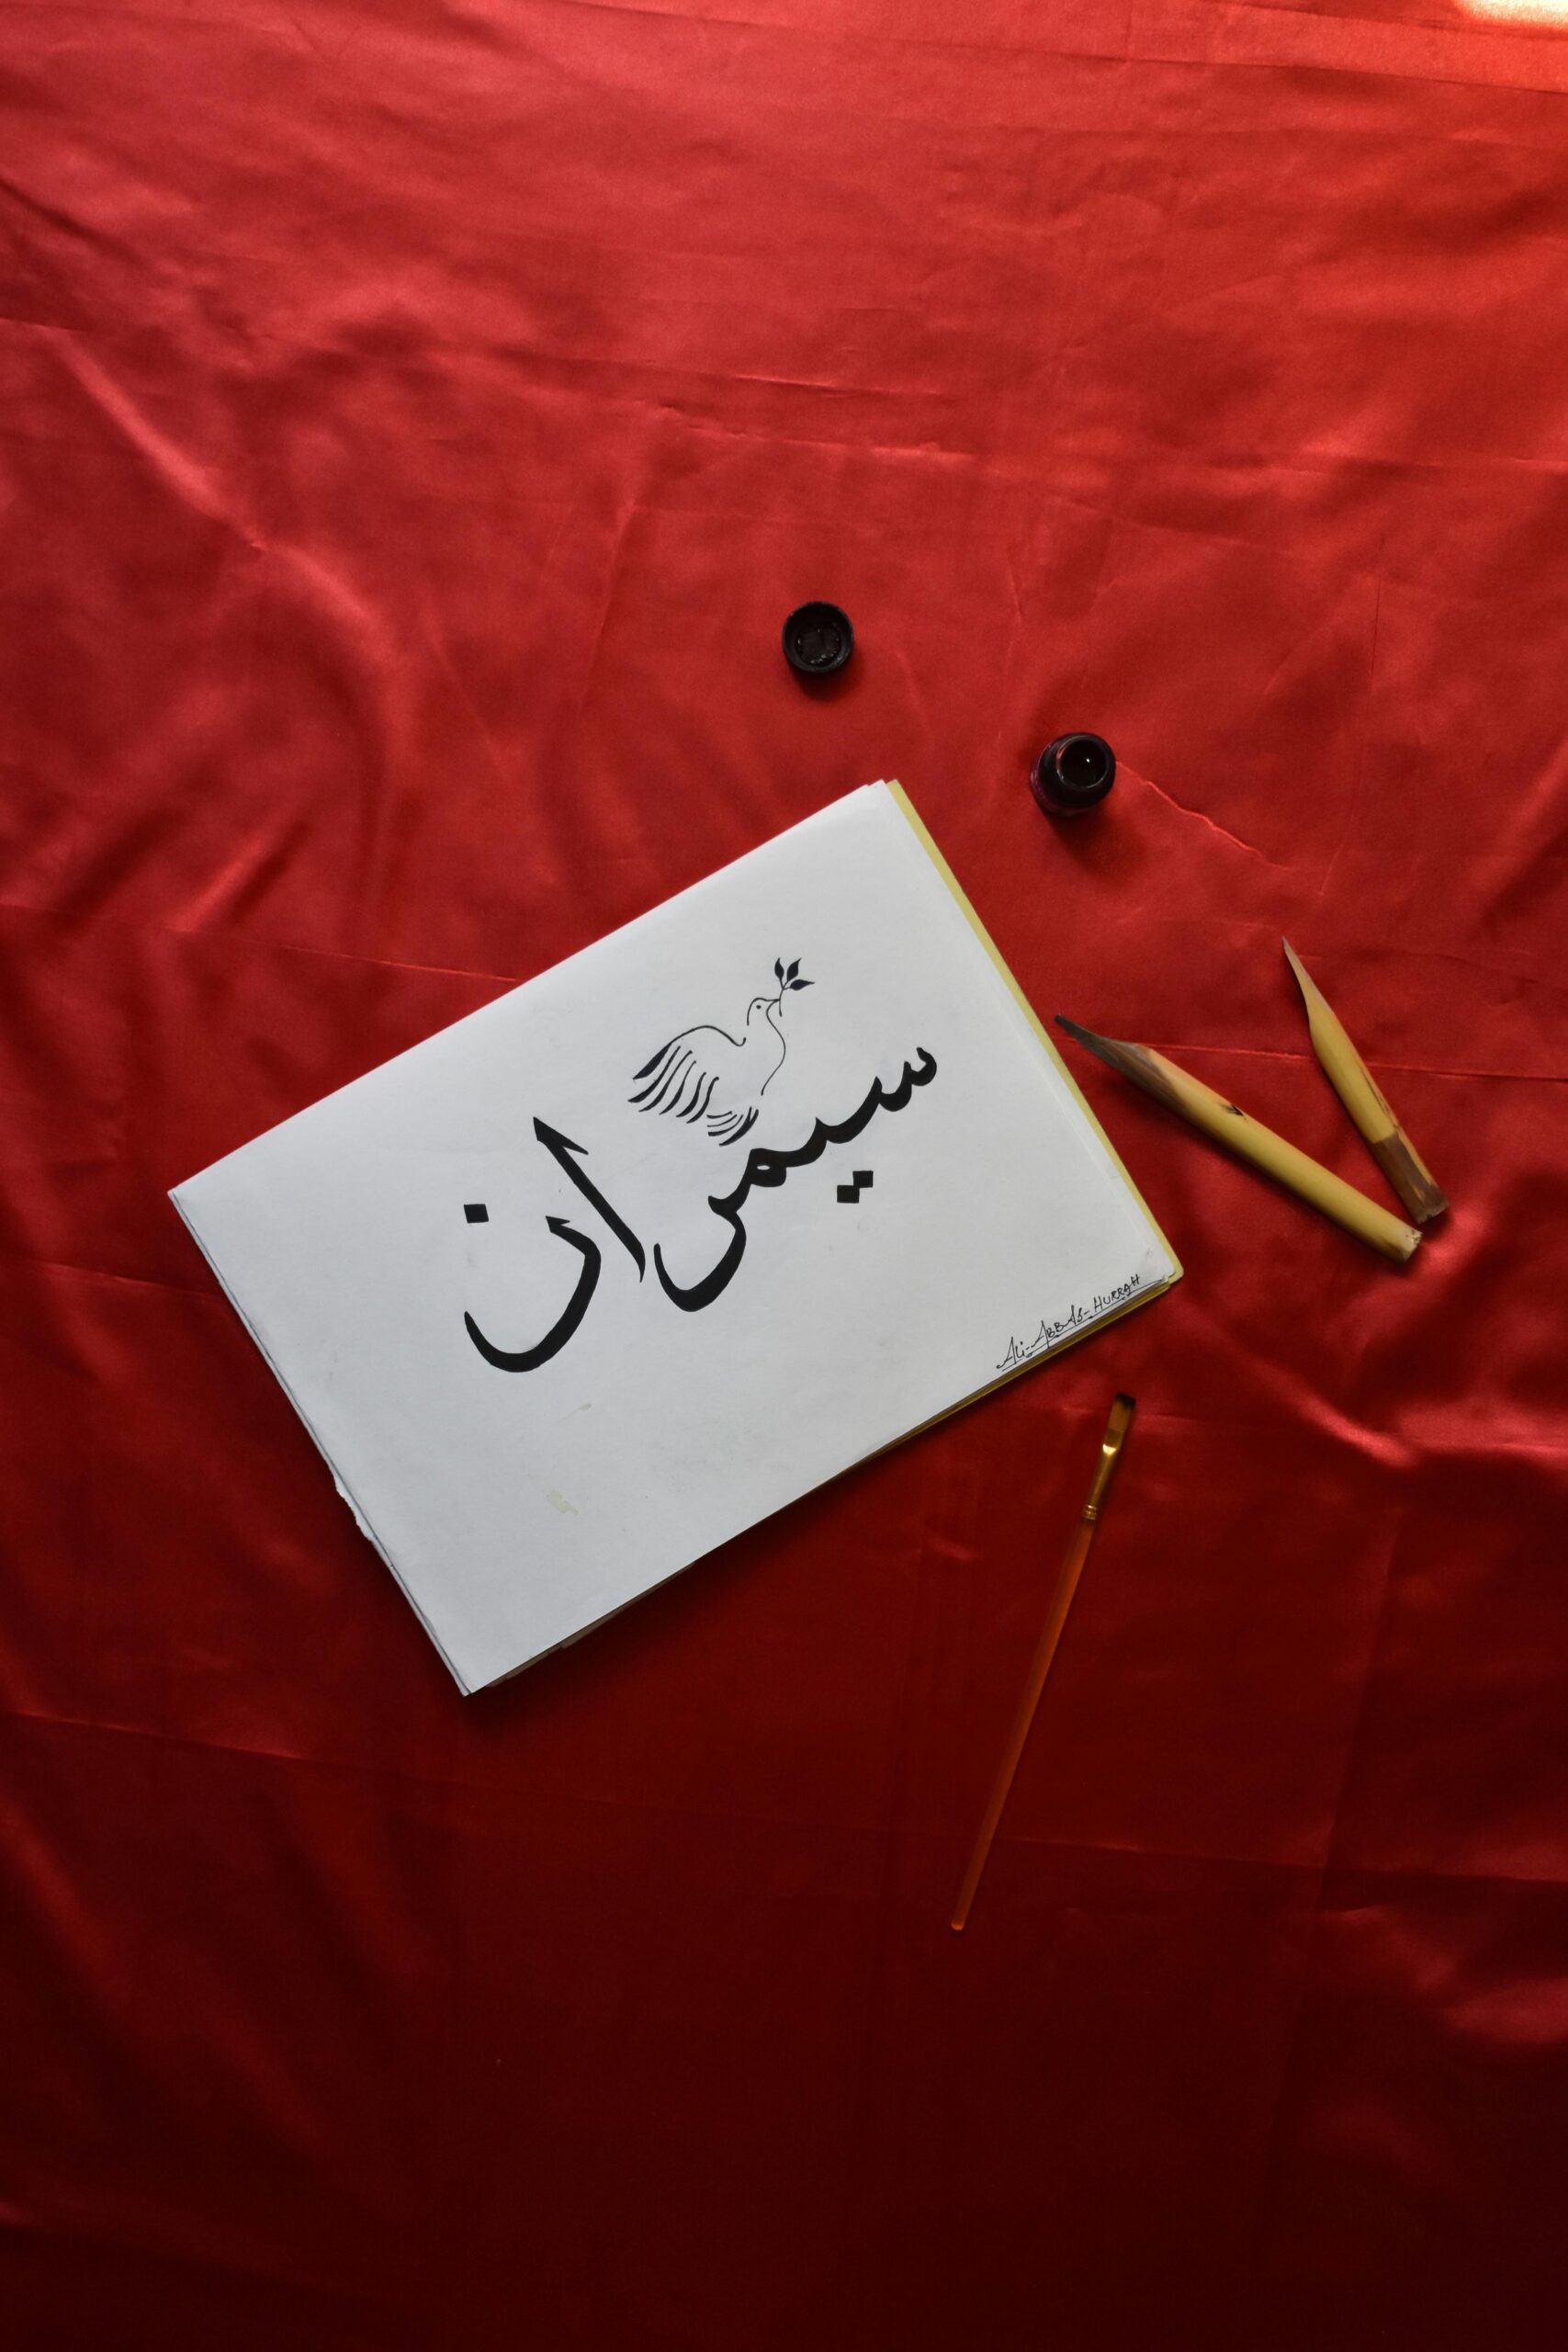 سیمران
Ali-Abbas-HURRAH